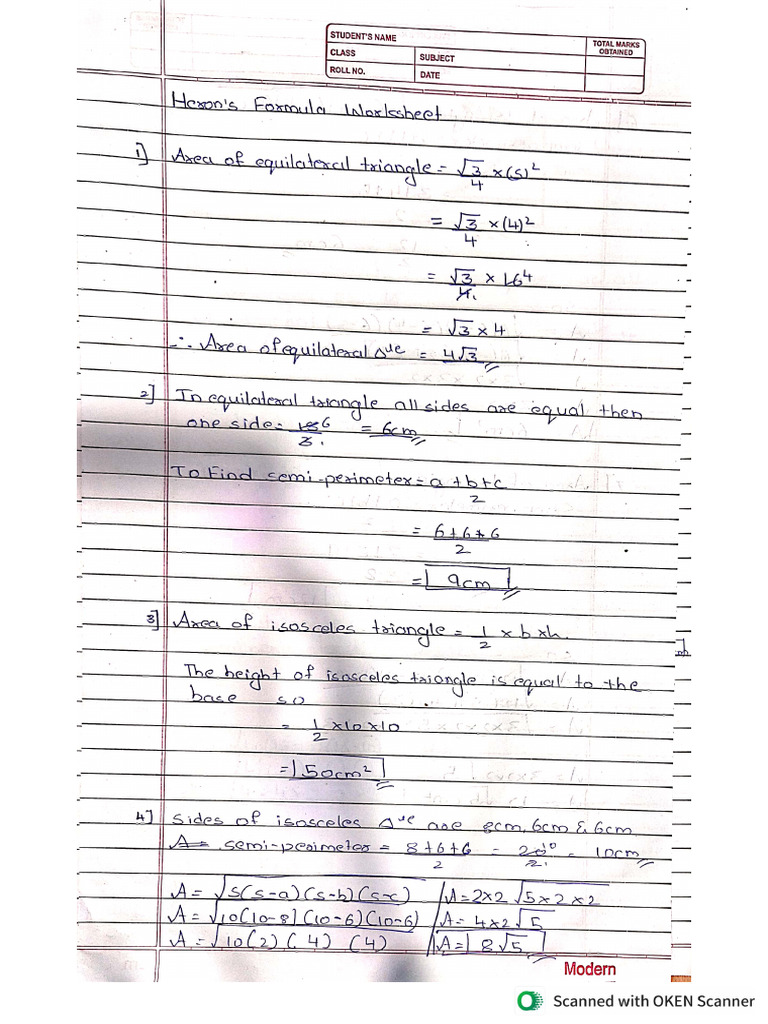 STUDENT'S NAME
TOTAL MARKS OBTAINED
CLASS
SUBJECT
ROLL NO.
DATE
Heron's Formula Worksheet
1] Area of equilateral triangle = √3/4 × (s)²
= √3/4 × (4)²
= √3/4 × 16 4
= √3 × 4
∴ Area of equilateral Δle = 4√3
2] In equilateral triangle all sides are equal then
one side = 18 6/3 1 = 6cm
To Find semi-perimeter = a + b + c/2
= 6+6+6/2
= 9cm
3] Area of isosceles triangle = 1/2 × b × h
The height of isosceles triangle is equal to the
base so
= 1/2 × 10 × 10
= 50cm²
4] Sides of isosceles Δle are 8cm, 6cm & 6cm
A = semi-perimeter = 8+6+6/2 = 20 10/2 1 = 10cm
A = √s(s-a)(s-b)(s-c)
A = √10(10-8)(10-6)(10-6)
A = √10(2)(4)(4)
A = 2×2√5×2×2
A = 4×2√5
A = 8√5
Modern
Scanned with OKEN Scanner